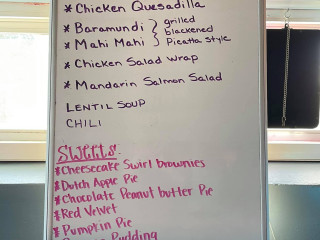 * Chicken Quesadilla
* Baramundi } grilled
blackened
* Mahi Mahi } Picatta Style
* Chicken Salad Wrap
* Mandarin Salmon Salad
LENTIL SOUP
CHILI
SWEETS:
* Cheesecake Swirl brownies
* Dutch Apple Pie
* Chocolate Peanut butter Pie
* Red Velvet
* Pumpkin Pie
Pudding